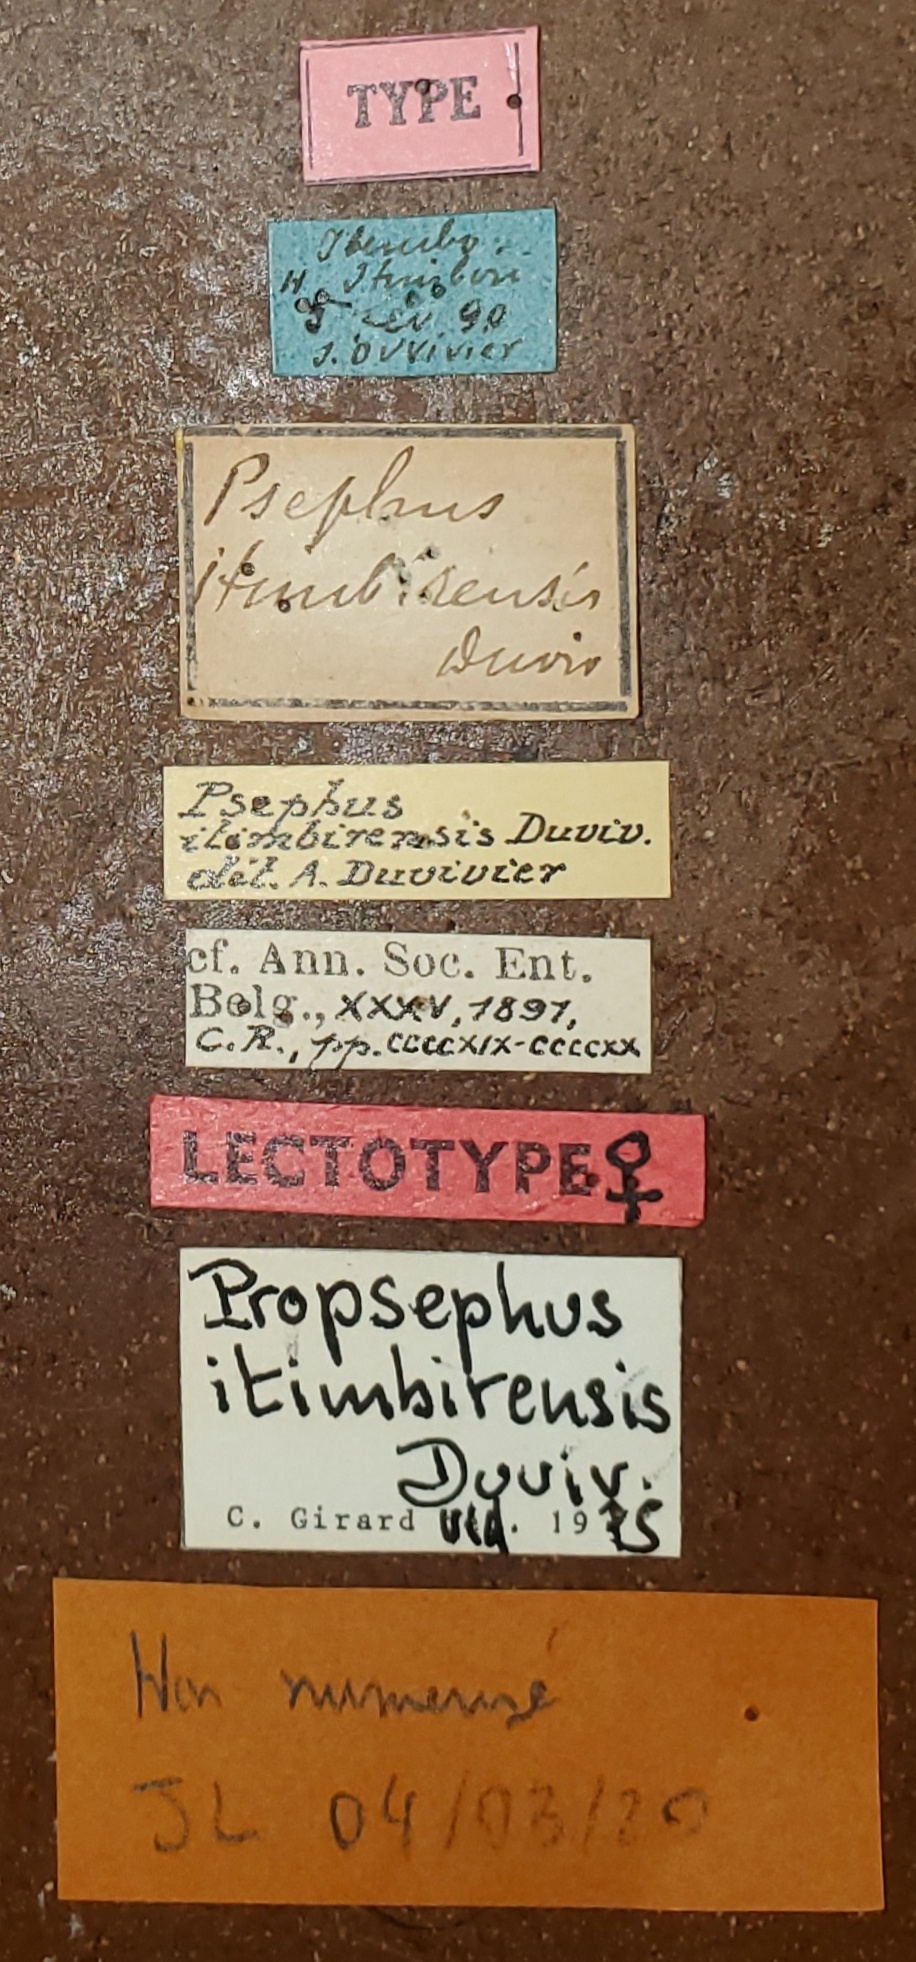 TYPE
Ibembo
H Itimbiri
90
J. Duvivier
Psephus
itimbirensis
Duviv
Psephus
itimbirensis Duviv.
dét. A. Duvivier
cf. Ann. Soc. Ent.
Belg., XXXV, 1891,
C.R., pp. CCCCXIX-CCCCXX
LECTOTYPE ♀
Propsephus
itimbirensis
Duviv.
C. Girard 19
Non numerisé
JL 04/03/20